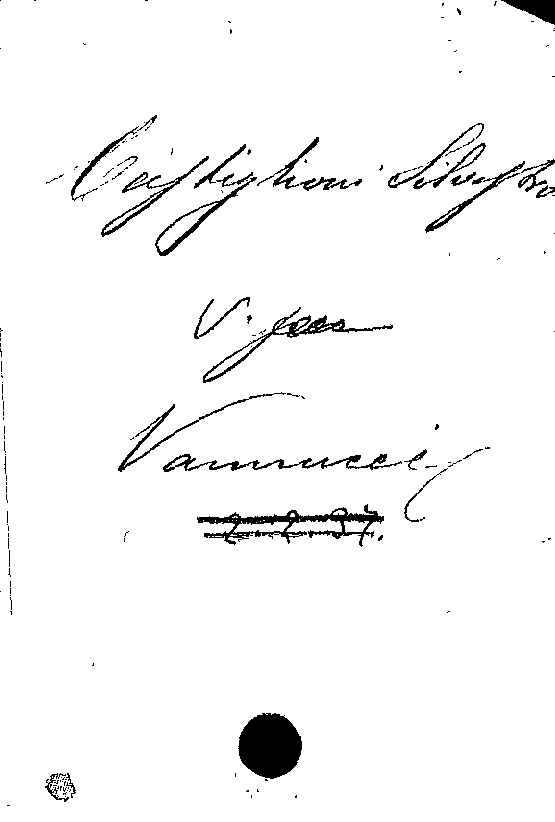 Castiglioni Silvestro
V. gea
Vannucci
2 2 37.